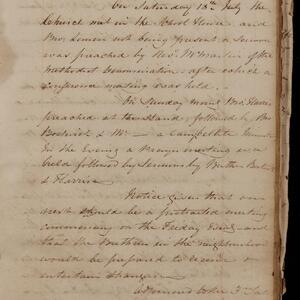 On Saturday 18th July the
Church met in the School House and
Bro. Lemen not being present a Sermon
was preached by Revd. Mr. of the
Methodist Denomination after which a
Conference meeting was held.
On Sunday morng Bro. Harris
preached at the Stand followed by Bro
& Mr — a Campbellite
In the Evening a Prayer meeting was
held followed by Sermons by Brethren
& Harris
Notice given that on
next should be a protracted meeting
commencing on the Friday Eveng and
that the Brethren in the neighborhood
would be prepared to receive &
entertain strangers
adjourned